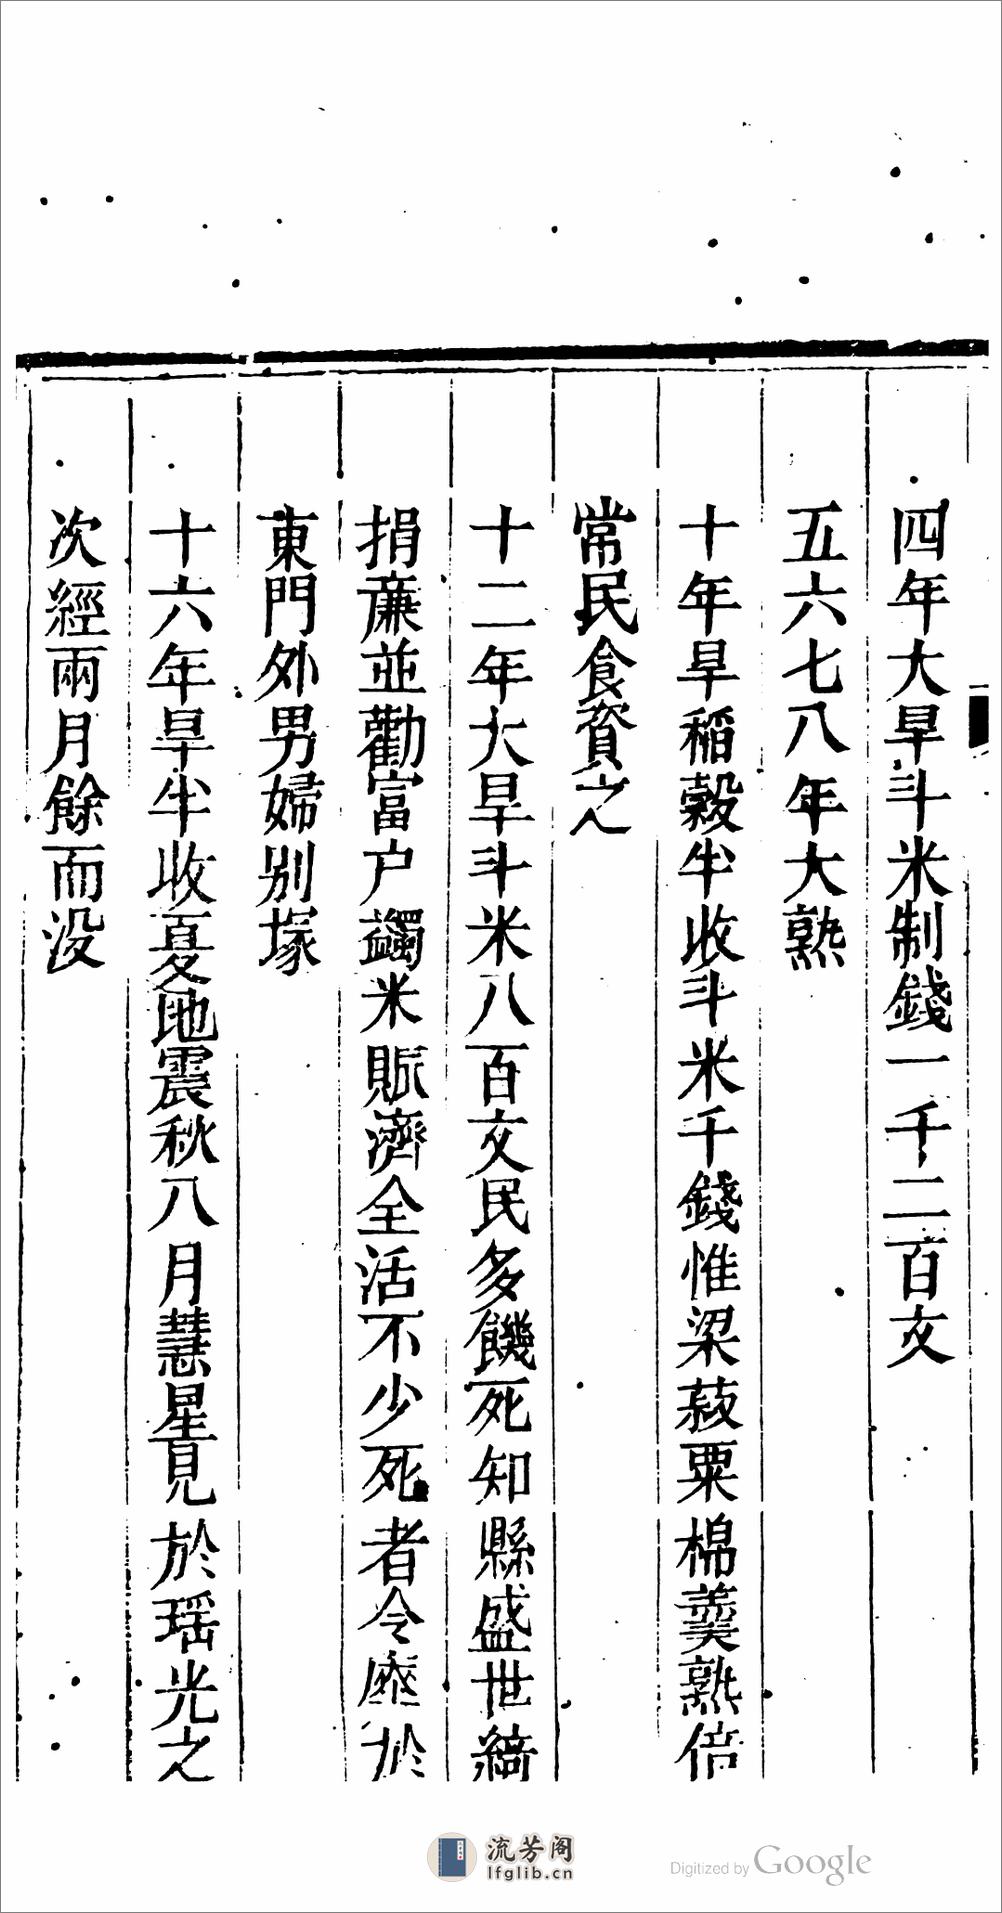 四年大旱斗米制錢一千二百文
五六七八年大熟
十年旱稻穀半收斗米千錢惟梁菽粟棉羹熟倍
常民食資之
十二年大旱斗米八百文民多饑死知縣盛世綺
捐廉並勸富户蠲米賑濟全活不少死者令瘞於
東門外男婦别塚
十六年旱半收夏地震秋八月慧星見於瑶光之
次經兩月餘而没
流芳阁
lfglib.cn
Digitized by Google